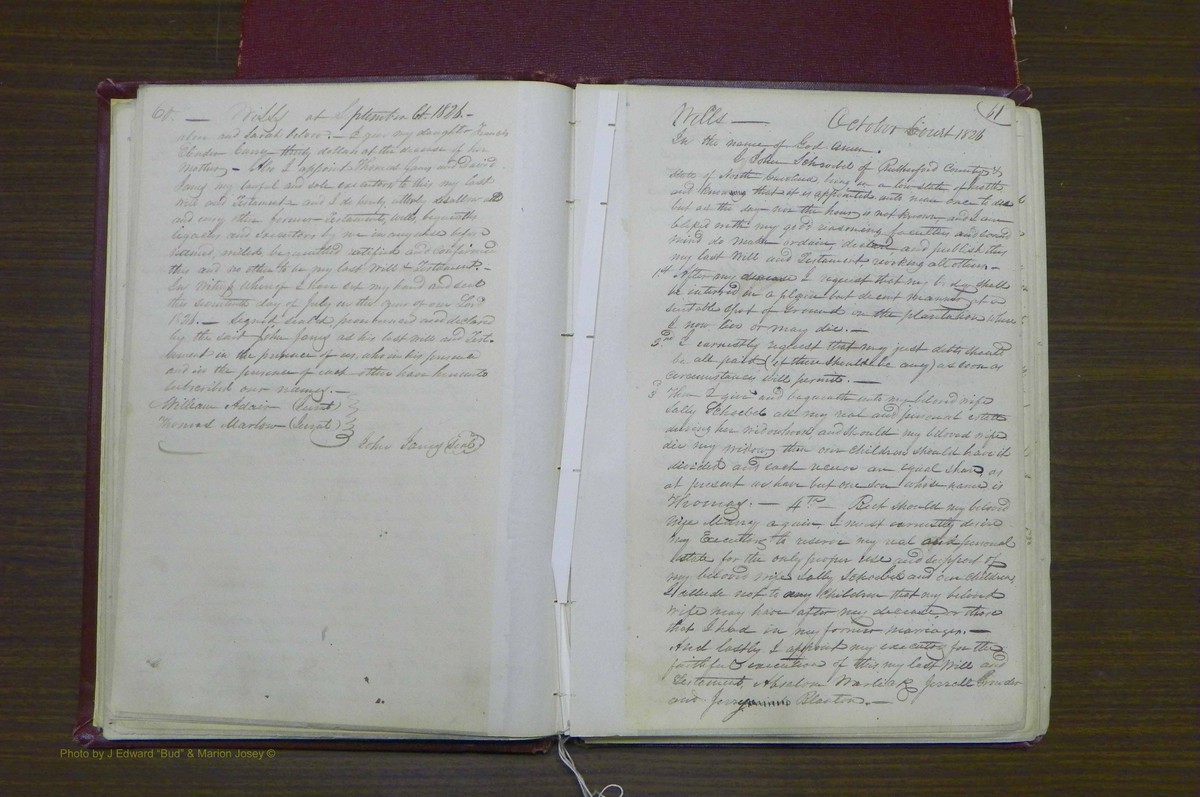 60. — Wills at September Ct. 1826. —
above and Sarah below. — I give my daughter
thirty dollars at the decease of her
Mother, — Also I appoint Thomas Jany and David
Jany my lawful and sole executors to this my last
will and Testament and I do hereby utterly disallow
and every other former Testaments, wills, bequeaths
legacies and Executors by me in any wise before
named, willed bequeathed ratifying and confirming
this and no other to be my last Will & Testament. —
In Witness whereof I have set my hand and seal
this seventeenth day of July in the year of our Lord
1826. — Signed seal'd, pronounced and declared
by the said John Janey as his last Will and Test-
ament in the presence of us, who in his presence
and in the presence of each other have hereunto
subscribed our names. —
William Adair (Jurat)
Thomas Marlow (Jurat)
John Janey (Seal)
61
Wills — October Court 1826
In the name of God Amen.
I, John Schoebel of Rutherford County &
State of North Carolina, being in a low state of health
and knowing that it is appointed unto man once to die
but as the day nor the hour is not known, and I am
blessed with my good reasoning faculties and sound
mind do make ordain, declare and publish this
my last Will and Testament, revoking all others. —
1st. After any decease I request that my body shall
be interred in a plain but decent manner at a
suitable spot of Ground on the plantation where
I now live or may die. —
I earnestly request that my just debts should
be all paid (if there should be any) as soon as
circumstances will permit. —
3 Then I give and bequeath unto my beloved wife
Sally Schoebel all my real and personal estate
during her widowhood, and should my beloved wife
die my widow, then our children should have it
divided and each receive an equal share, as
at present as have but one son whose name is
Thomas. — 4th — But should my beloved
wife Marry again, I most earnestly desire
my Executors to reserve my real and personal
estate for the only proper use and support of
my beloved wife Sally Schoebel and our children,
I allude not to any Children that my beloved
wife may have after my decease, or those
that I had in my former marriages. —
And lastly I appoint my executors for the
faithful execution of this my last Will and
Testament, Absalom Warlick, Jerrell Crowder
and Blanton. —
Photo by J Edward "Bud" & Marion Josey ©